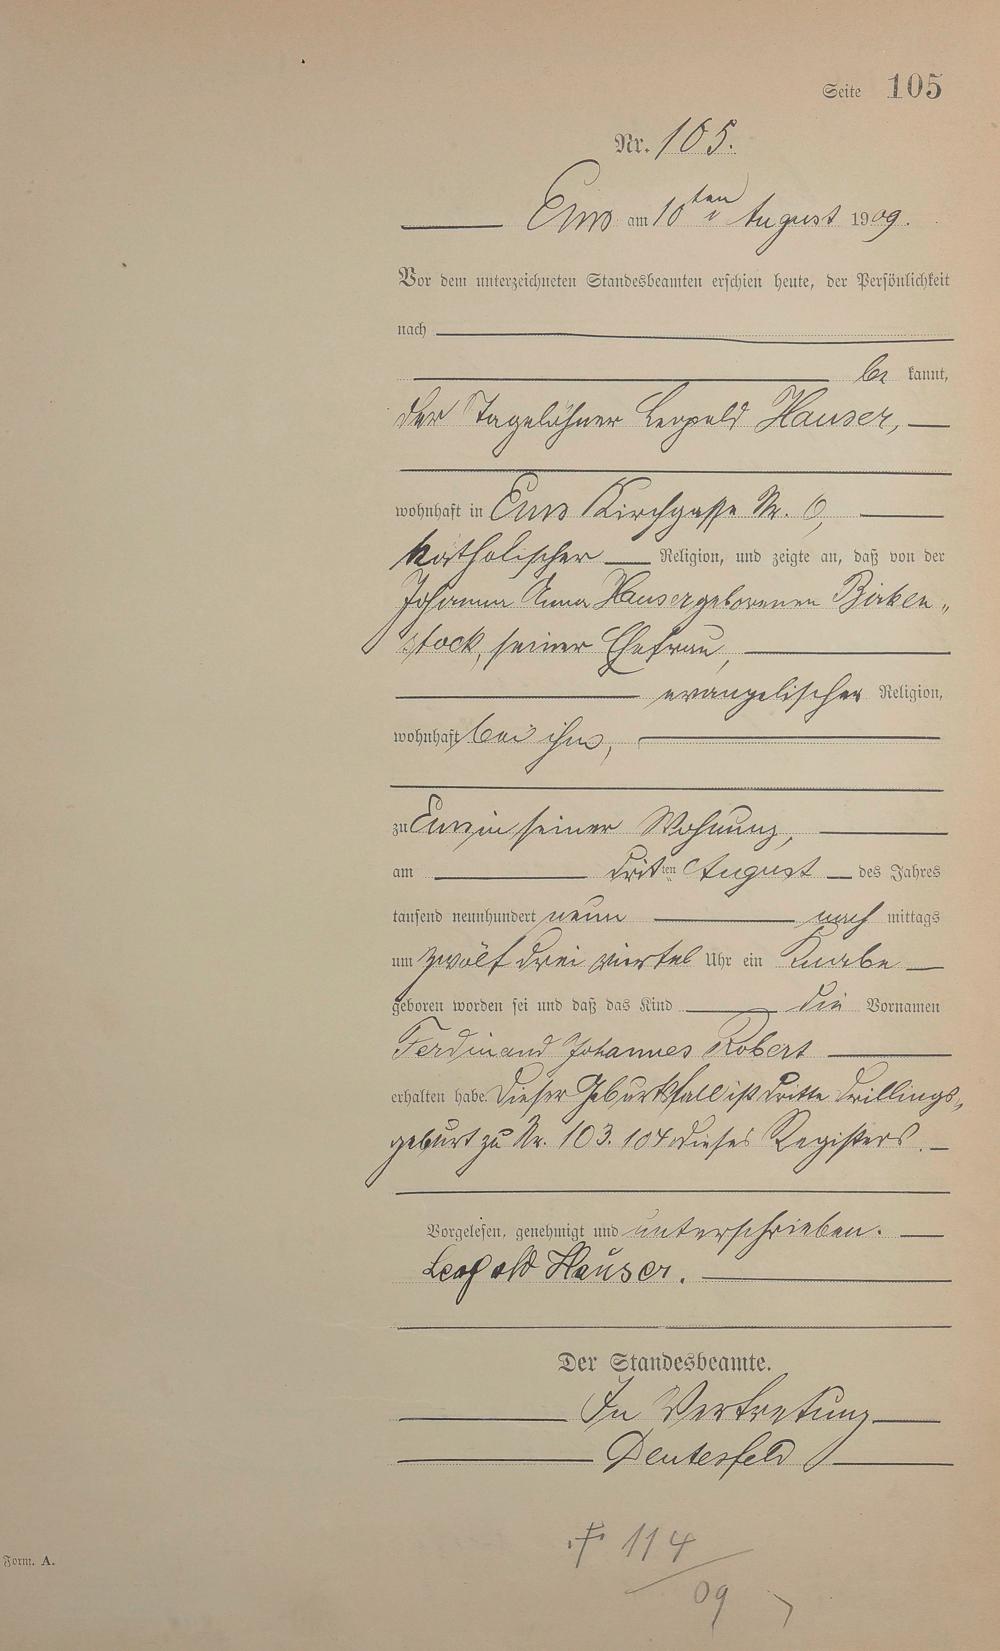 Seite 105
Nr. 105.
Ems am 10ten August 1909.
Vor dem unterzeichneten Standesbeamten erschien heute, der Persönlichkeit
nach
be kannt,
der Tagelöhner Leopold Hauser,
wohnhaft in Ems Kirchgasse Nr. 6,
katholischer Religion, und zeigte an, daß von der
Johanna Anna Hauser geborenen Birken„
stock, seiner Ehefrau,
evangelischer Religion,
wohnhaft bei ihm,
zu Ems in seiner Wohnung,
am dritten August des Jahres
tausend neunhundert neun nach mittags
um zwölf drei viertel Uhr ein Knabe
geboren worden sei und daß das Kind die Vornamen
Ferdinand Johannes Robert
erhalten habe. Dieser Geburtsfall ist dritte Drillings„
geburt zu Nr. 103. 104 dieses Registers.
Vorgelesen, genehmigt und unterschrieben.
Leopold Hauser.
Der Standesbeamte.
In Vertretung
Deutesfeld
114
09
Form. A.